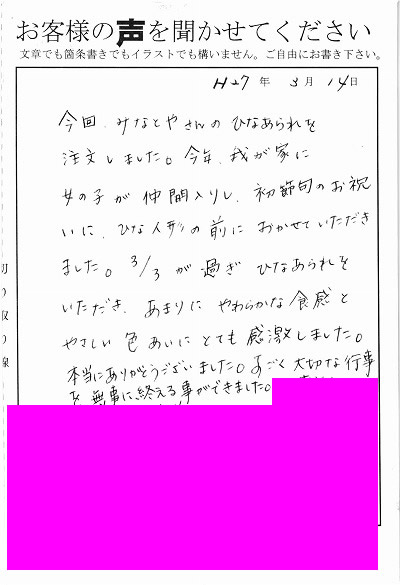 お客様の声を聞かせてください
文章でも箇条書きでもイラストでも構いません。ご自由にお書き下さい。
H27年 3月 14日
今回、みなとやさんの ひなあられを
注文しました。今年、我が家に
女の子が 仲間入りし、初節句のお祝
いに、ひな人形の前に おかせていただき
ました。3/3 が 過ぎ ひなあられを
いただき、あまりに やわらかな 食感と
やさしい 色あいに とても 感激しました。
本当にありがとうございました。すごく 大切な 行事
を 無事に終える事ができました。